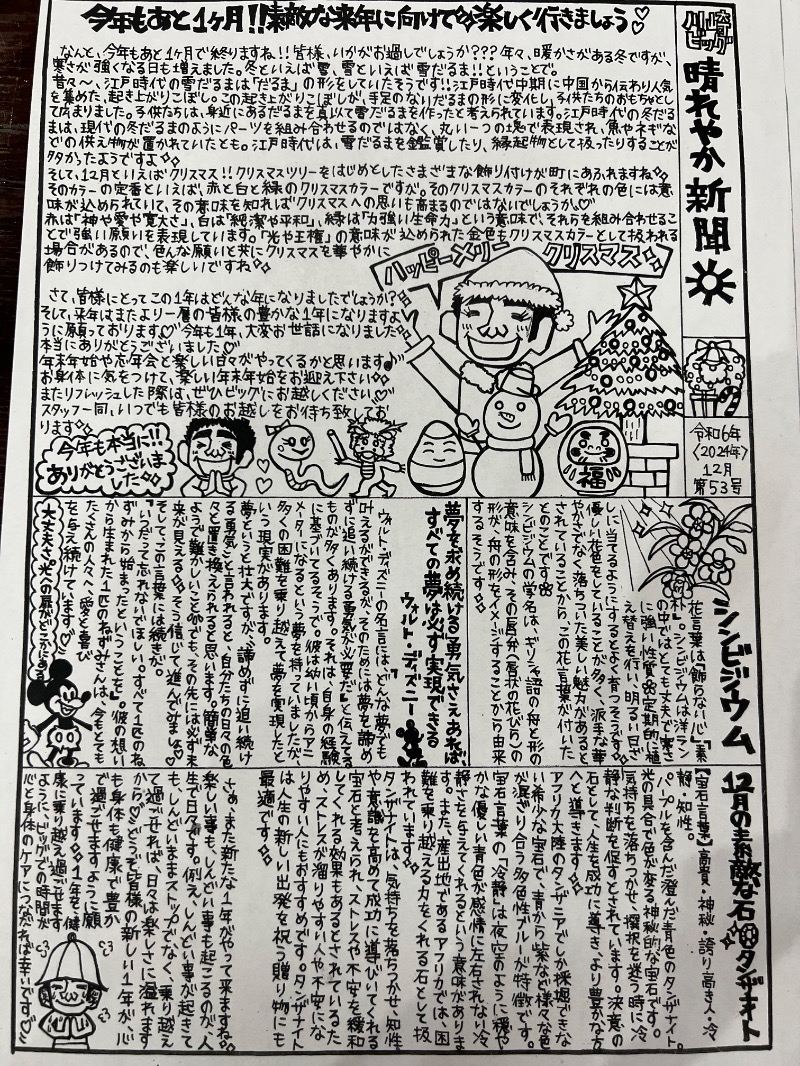 今年もあと1ヶ月!!素敵な来年に向けて楽しく行きましょう♡
なんと、今年もあと1ヶ月で終りますね!!皆様、いかがお過しでしょうか???年々、暖かさがある冬ですが、
寒さが強くなる日も増えました。冬といえば雪、雪といえば雪だるま!!ということで。
昔々〜、江戸時代の雪だるまは「だるま」の形をしていたそうです!!江戸時代中期に中国から伝わり人気
を集めた、起き上がりこぼし。この起き上がりこぼしが、手足のないだるまの形に変化し、子供たちのおもちゃとし
て広まりました。子供たちは、身近にあるだるまを真似て雪だるまを作ったと考えられています。江戸時代の冬だる
まは、現代の冬だるまのようにパーツを組み合わせるのではなく、丸い一つの塊で表現され、魚やネギな
どの供え物が置かれていたとも。江戸時代は、雪だるまを鑑賞したり、縁起物として扱ったりすることが
多かったようですよ
そして、12月といえばクリスマス!!クリスマスツリーをはじめとしたさまざまな飾り付けが町にあふれますね
そのカラーの定番といえば、赤と白と緑のクリスマスカラーですが。そのクリスマスカラーのそれぞれの色には意
味が込められていて、その意味を知ればクリスマスへの思いも高まるのではないでしょうか♡
赤は「神や愛や寛大さ」、白は「純潔や平和」、緑は「力強い生命力」という意味で、それらを組み合わせるこ
とで強い願いを表現しています。「光や王権」の意味が込められた金色もクリスマスカラーとして扱われる
場合があるので、色んな願いと共にクリスマスを華やかに
飾りつけてみるのも楽しいですね
ハッピーメリークリスマス
さて、皆様にとってこの1年はどんな年になりましたでしょうか?
そして、来年はまたより一層の皆様の豊かな1年になりますよ
うに願っております♡今年も1年、大変お世話になりました
本当にありがとうございました♡
年末年始や忘年会と楽しい日々がやってくるかと思います♪
お身体に気をつけて、楽しい年末年始をお迎え下さい
またリフレッシュした際は、ぜひビッグにお越しください♡
スタッフー同、いつでも皆様のお越しをお待ち致してお
ります
今年も本当に!!
ありがとうございま
した
福
ビッグ
晴れやか新聞
令和6年
〈2024年〉
12月
第53号
シンビジウム
花言葉は「飾らない心」「素
朴」。シンビジウムは洋ラン
の中ではとても丈夫で寒さ
に強い性質。定期的に植
え替えを行い、明るい日ざ
しに当てるようにするとよく育つそうです
優しい花色をしていることが多く、派手な華
やかさでなく落ちついた美しい魅力があると
されていることから、この花言葉が付いた
とのことです
シンビジウムの学名は、ギリシャ語の舟と形の
意味を含み、その唇弁(唇状の花びら)の
形が、舟の形をイメージすることから由来
するそうです
夢を求め続ける勇気さえあれば、
すべての夢は必ず実現できる
ウォルト・ディズニー
ウォルト・ディズニーの名言には、「どんな夢でも
叶えるができるが、そのためには夢を諦め
ずに追い続ける勇気が必要だ」と伝えてる
ものが多くあります。それは、自身の経験
に基づいてるそうで。彼は幼い頃からアニ
メーターになるという夢を持っていましたが、
多くの困難を乗り越えて夢を実現したと
いう現実があります。
夢というと壮大ですが、諦めずに追い続け
る勇気と言われると、自分たちの日々の色
々と置き換えられると思います。簡単な
ようで難しいことでも、その先には必ず未
来が見える。そう信じて進んでみましょう
そしてこの言葉には続きが。
「いつだって忘れないでほしい。すべて1匹のね
ずみから始まったということを」。彼の想い
から生まれた1匹のねずみさんは、今もとても
たくさんの人々へ、愛と喜び
を与え続けています♡
大丈夫さ♡光への扉がどこかにある
12月の素敵な石 タンザナイト
【宝石言葉】高貴・神秘・誇り高き人・冷
静・知性。
パープルを含んだ澄んだ青色のタンザナイト。
光の具合で色が変る神秘的な宝石です。
気持ちを落ちつかせ、選択を迷う時に冷
静な判断を促すとされています。決意の
石として、人生を成功に導き、より豊かな方
へと導きます
アフリカ大陸のタンザニアでしか採掘できな
い希少な宝石で、青から紫など様々な色
が混ざり合う多色性ブルーが特徴です。
宝石言葉の「冷静」は夜空のように穏や
かな優しい青色が感情に左右されない冷
静さを与えてくれるという意味がありま
す。また、産出地であるアフリカでは、困
難を乗り越える力をくれる石として扱
われています
タンザナイトは、気持ちを落ちつかせ、知性
や意識を高めて成功に導びいてくれる
宝石と考えられ、ストレスや不安を緩和
してくれる効果もあるとされているた
め、ストレスが溜りやすい人や不安にな
りやすい人にもおすすめです。タンザナイト
は人生の新しい出発を祝う贈り物にも
最適です
さぁ、また新たな1年がやって来ますね
楽しい事も、しんどい事も起こるのが、人
生で日々です。例え、しんどい事が起きて
も、しんどいままストップでなく、乗り越え
て過ごせれば、日々は楽しさに溢れます
から♡どうぞ皆様の新しい1年が、心
も身体も健康で豊か
で過ごせますように願
っています。1年を健
康に乗り越え過ごせます
ように、ビッグでの時間が
心と身体のケアにつながれば幸いです♡